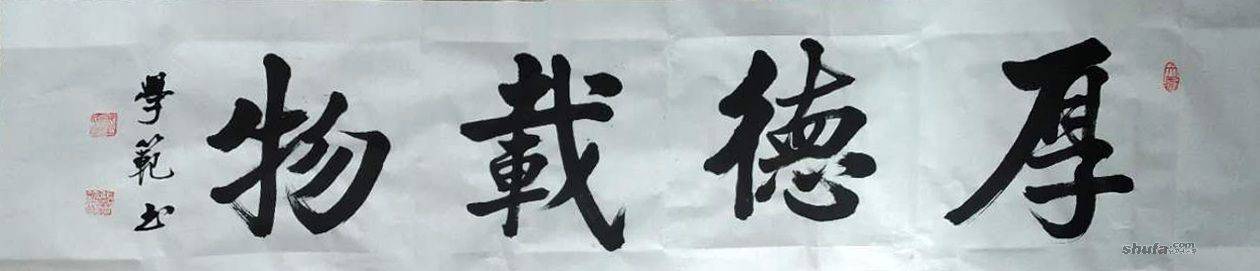 厚德載物
學範书
shufa.com